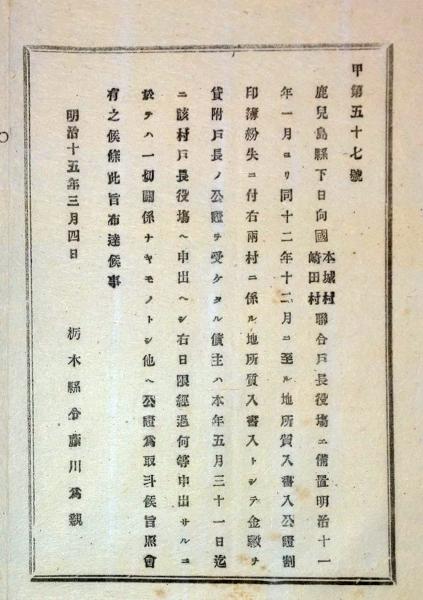 甲第五十七號
鹿兒島縣下日向國本城村崎田村聯合戶長役塲ニ備置明治十一
年一月ヨリ同十二年十二月ニ至ル地所質入書入公證割
印簿紛失ニ付右兩村ニ係ル地所質入書入トシテ金穀ヲ
貸附戶長ノ公證ヲ受ケタル債主ハ本年五月三十一日迄
ニ該村戶長役塲ヘ申出ヘシ右日限經過何等申出サルニ
於テハ一切關係ナキモノトシ他ヘ公證爲取斗候旨照會
有之候條此旨布達候事
明治十五年三月四日
栃木縣令藤川爲親